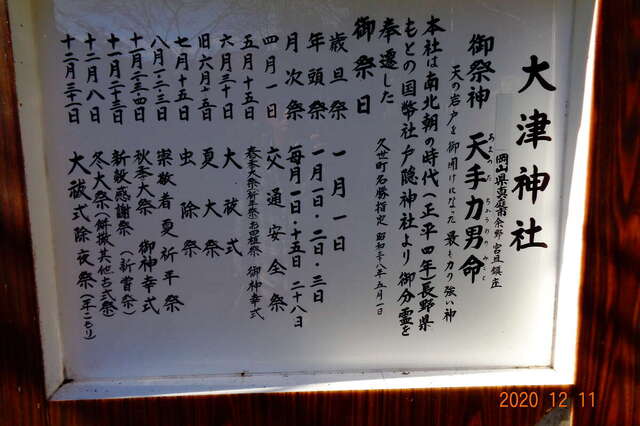 大津神社
岡山県真庭市余野 宮旦鎮座
御祭神 天手力男命
あめのたぢからをのみこと
天の岩戸を御開けになった最も力強い神
本社は南北朝の時代(正平四年)長野県
もとの国幣社戸隠神社より御分霊を
奉遷した
久世町名勝指定 昭和三十八年五月一日
御祭日
歳旦祭 一月一日
年頭祭 一月一日・二日・三日
月次祭 毎月一日・十五日 二十八日
四月一日 交通安全祭
五月十五日 春季大祭祈年祭お田植祭 御神幸式
六月三十日 大祓式
旧六月十五日 夏大祭
七月十五日 虫除祭
八月一・二・三日 崇敬者夏祈平祭
十月二・三・四日 秋季大祭 御神幸式
十一月二十三日 新穀感謝祭(新嘗祭)
十二月八日 冬大祭(餅撒其他古式祭)
十二月三十一日 大祓式除夜祭(年こもり)
2020 12 11